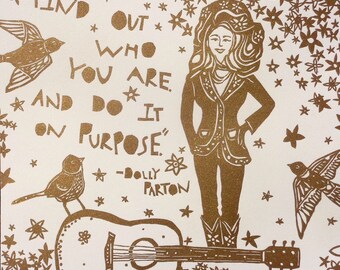 FIND OUT
WHO
YOU ARE.
AND DO IT
ON PURPOSE."
-DOLLY
PARTON